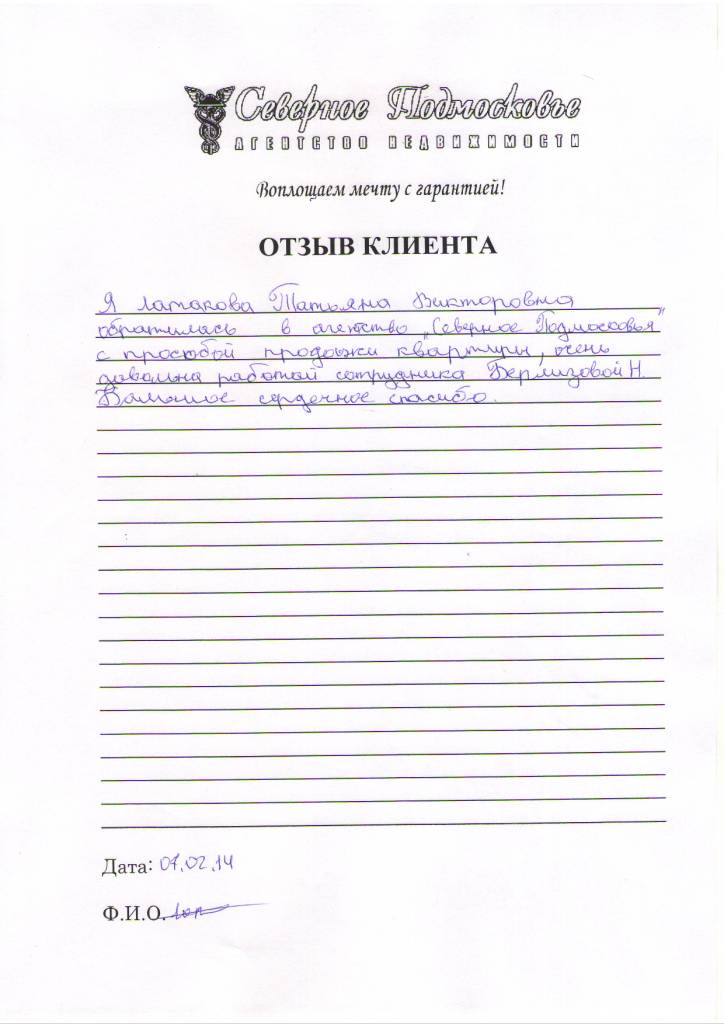 Северное Подмосковье
АГЕНТСТВО НЕДВИЖИМОСТИ
Воплощаем мечту с гарантией!
ОТЗЫВ КЛИЕНТА
Я Латакова Татьяна Викторовна
обратилась в агетство „Северное Подмосковья"
с просьбой продажи квартиры, очень
довольна работой сотрудника Берлизовой Н.
Вам сердечное спасибо.
Дата: 07.02.14
Ф.И.О.